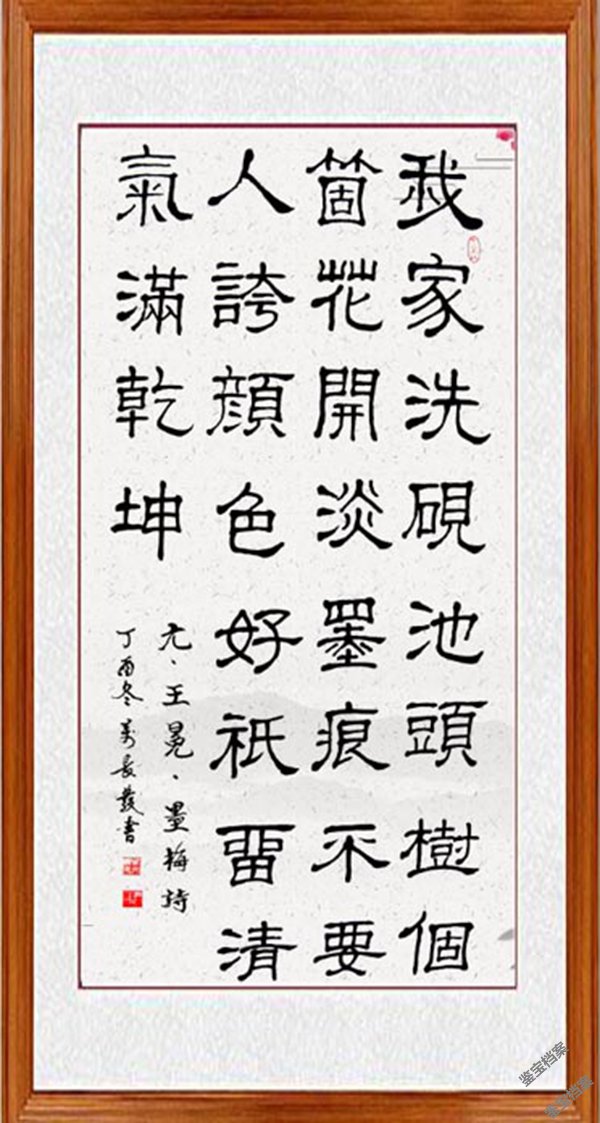 我家洗硯池頭樹個
箇花開淡墨痕不要
人誇顏色好祇畱清
氣滿乾坤
元、王冕、墨梅詩
丁酉冬萬長發書
鉴宝档案
鉴宝档案